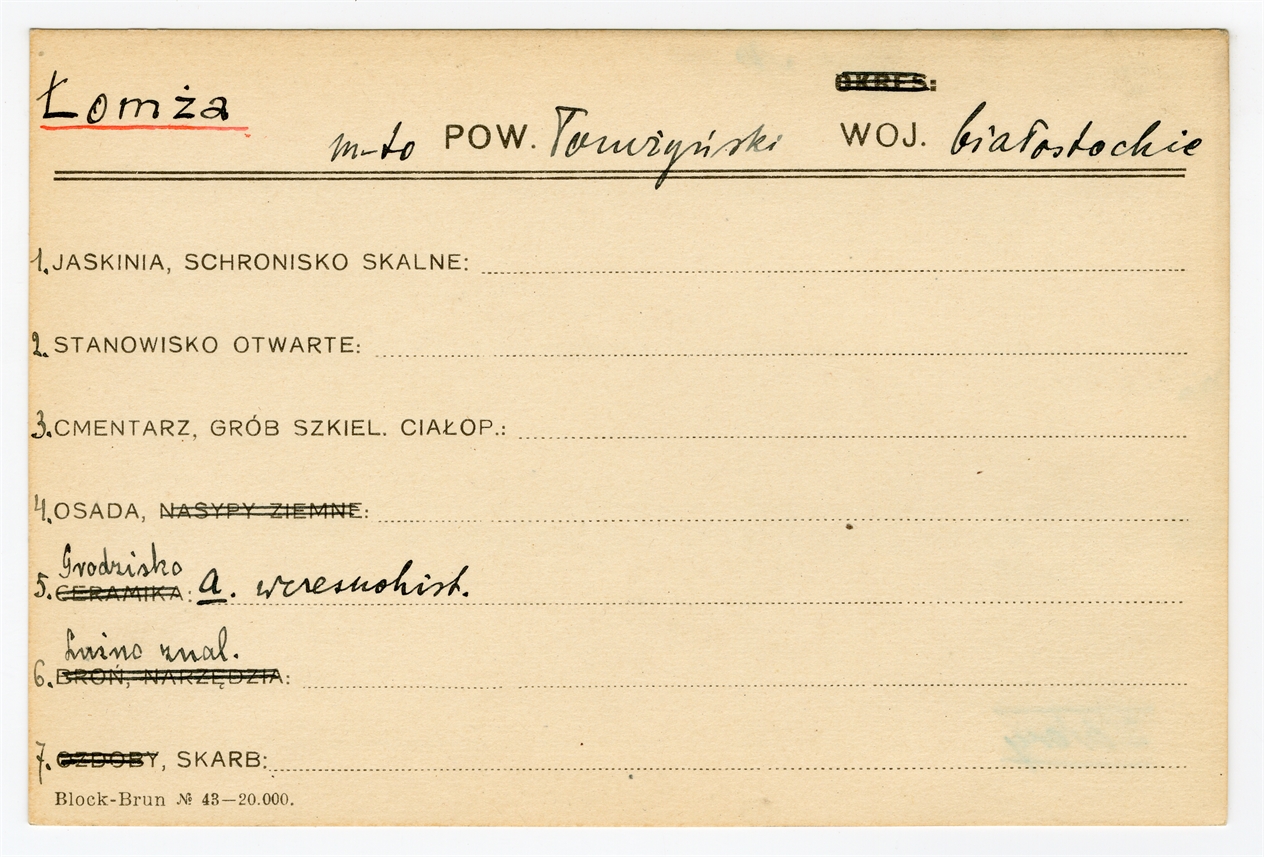 OKRES:
Łomża
m-to POW. Łomżyński WOJ. białostockie
1. JASKINIA, SCHRONISKO SKALNE:
2. STANOWISKO OTWARTE:
3. CMENTARZ, GRÓB SZKIEL. CIAŁOP.:
4. OSADA, NASYPY ZIEMNE:
Grodzisko
5. CERAMIKA: a. wczesnohist.
Luźno znal.
6. BROŃ, NARZĘDZIA:
7. OZDOBY, SKARB:
Block-Brun № 43—20.000.